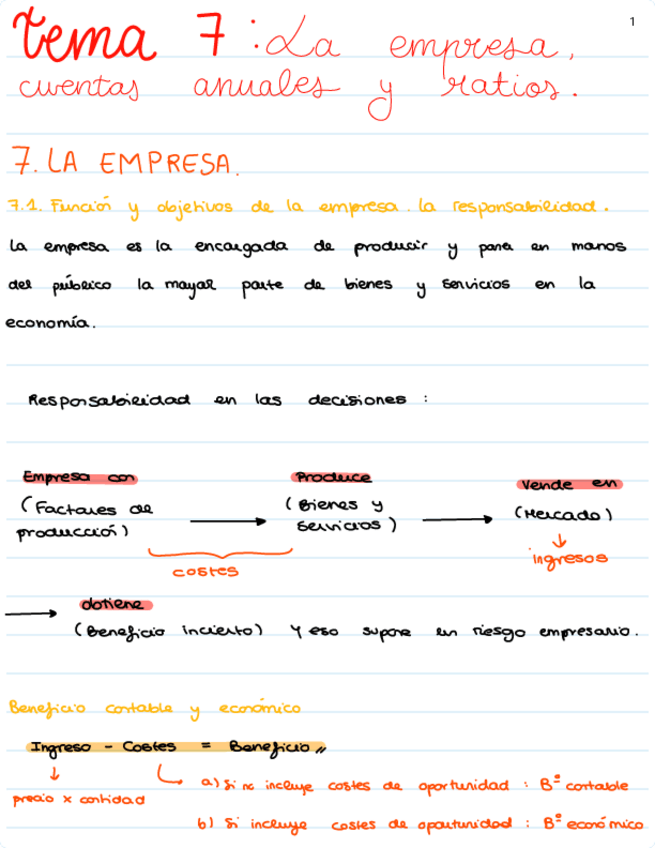 1
Tema 7: La empresa,
cuentas anuales y ratios.
7. LA EMPRESA.
7.1. Función y objetivos de la empresa. la responsabilidad.
La empresa es la encargada de producir y poner en manos
del público la mayor parte de bienes y servicios en la
economía.
Responsabilidad en las decisiones :
Empresa con
Produce
Vende en
(Factores de
producción)
(Bienes y
servicios)
(Mercado)
costes
ingresos
obtiene
(Beneficio incierto) Y eso supone un riesgo empresario.
Beneficio contable y económico
Ingreso - Costes = Beneficio
precio x cantidad
a) Si no incluye costes de oportunidad : Bº contable
b) Si incluye costes de oportunidad : Bº económico